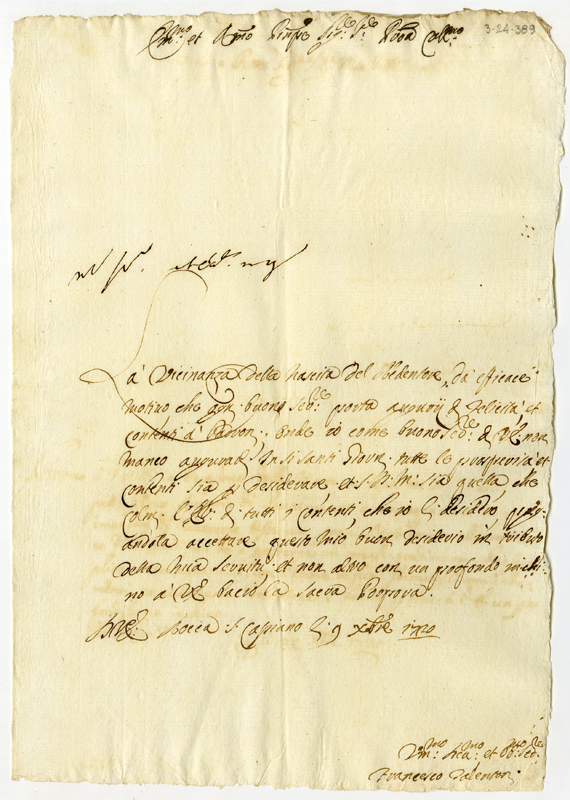 3-24-389
Em:mo et Rmo Prnpe Sig:re Sig:re Prõn Coll:mo
La Vicinanza della Nascita del Redentore, dà efficace
motivo che ogn buono Ser:re porta augurij di felicità, et
contenti à Padron: onde io come buono Ser:re di V.E. non
manco augurarle in Si Santi Giorni tutte le prosperità et
contenti sia p desiderare et S. D. M: sia quella che
tutti i contenti che io li desidero, pre:
andola accettare questo mio buon desiderio in tributo
della mia Servitù et non altro con un profondo inchi:
no à V.E. bacio la Sacra Porpora.
Di V.E. Rocca S. Casciano li 9 Xbre 1720
Vm:mo et Ser:re
Francesco Valentoni